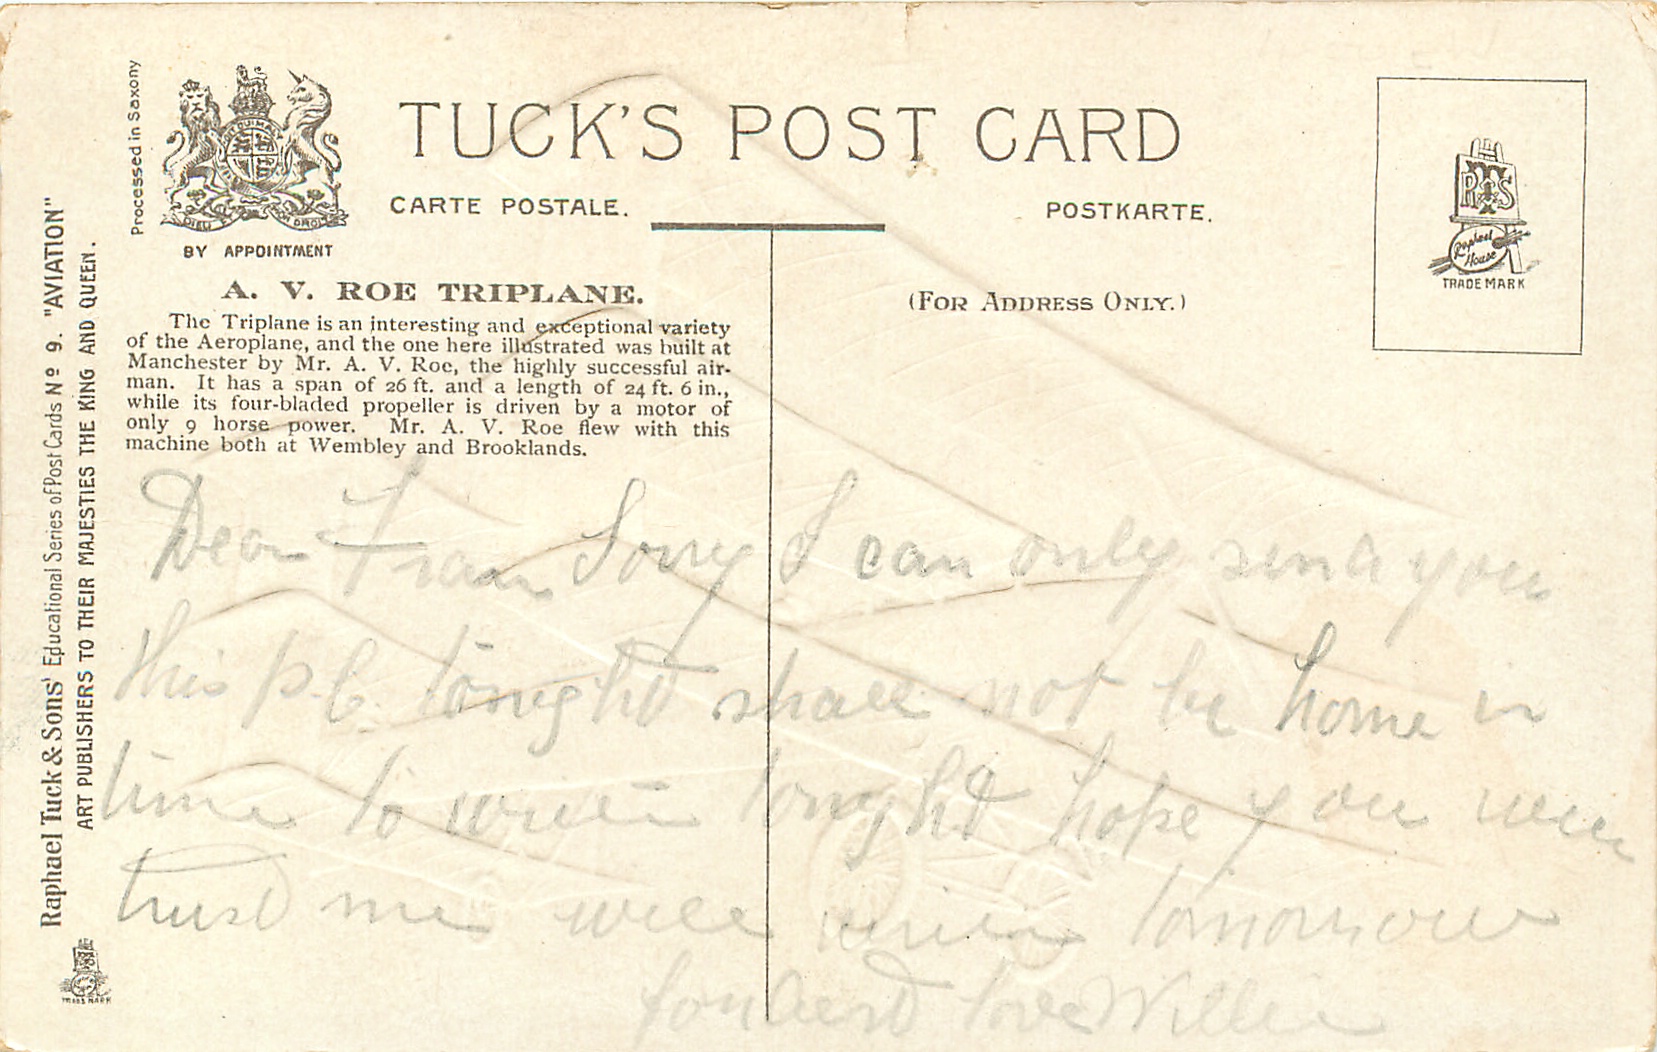 Processed in Saxony
TUCK'S POST CARD
CARTE POSTALE.
POSTKARTE.
BY APPOINTMENT
DIEU ET MON DROIT
RTS
Raphael House
TRADE MARK
(FOR ADDRESS ONLY.)
A. V. ROE TRIPLANE.
The Triplane is an interesting and exceptional variety
of the Aeroplane, and the one here illustrated was built at
Manchester by Mr. A. V. Roe, the highly successful air-
man. It has a span of 26 ft. and a length of 24 ft. 6 in.,
while its four-bladed propeller is driven by a motor of
only 9 horse power. Mr. A. V. Roe flew with this
machine both at Wembley and Brooklands.
Raphael Tuck & Sons' Educational Series of Post Cards Nº 9. "AVIATION"
ART PUBLISHERS TO THEIR MAJESTIES THE KING AND QUEEN.
TRADE MARK
Dear Fran Sorry I can only send you
this p.c. tonight shall not be home in
time to write tonight hope you will
trust me will write tomorrow
fondest love Willie